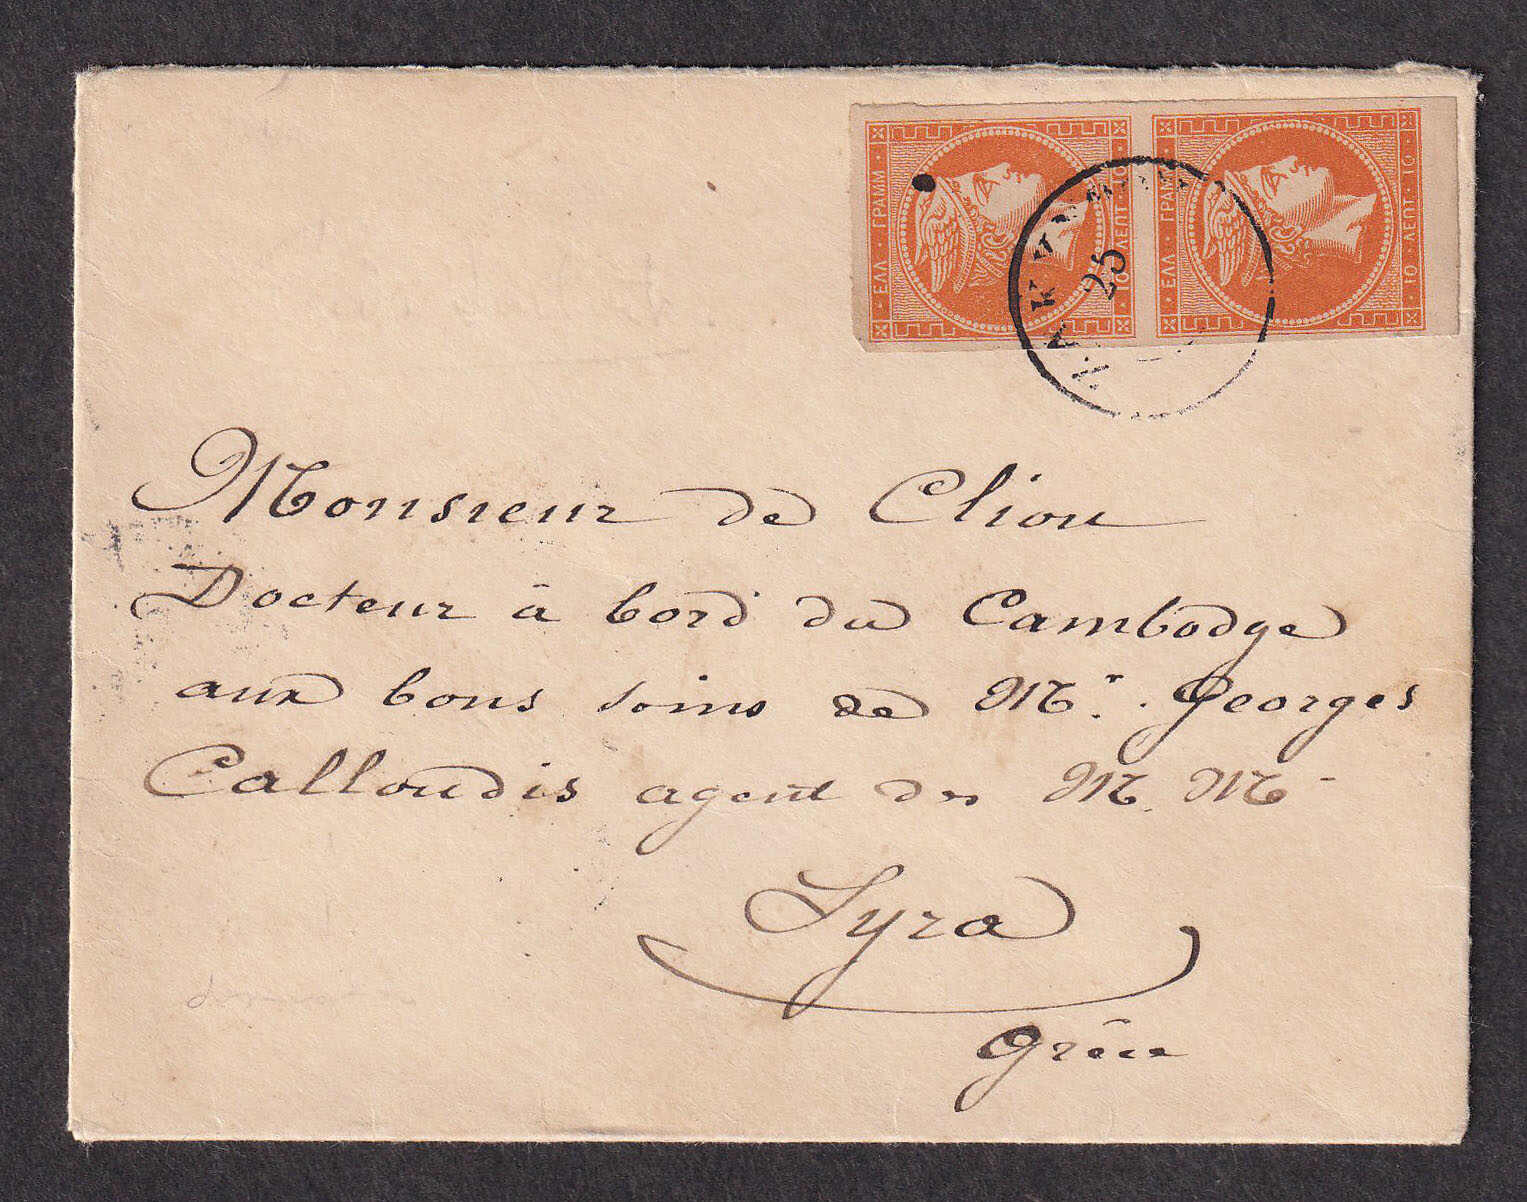 ΕΛΛ · ΓΡΑΜΜ
10 ΛΕΠΤ · 10
ΕΛΛ · ΓΡΑΜΜ
10 · ΛΕΠΤ · 10
25
Monsieur de Cliou
Docteur à bord du Cambodge
aux bons soins de Mr. Georges
Calloudis agent des M. M.
Syra
Grèce